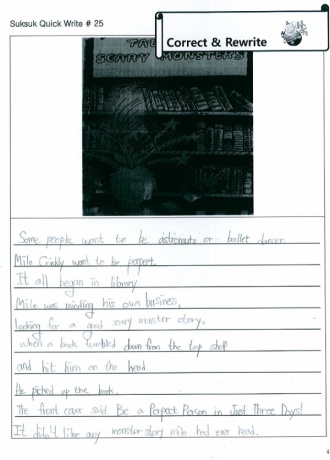 Suksuk Quick Write # 25
Correct & Rewrite
TALL
SCARY MONSTERS
Some people want to be astronauts or ballet dancer.
Milo Crinkly want to be perpect.
It all began in library
Milo was minding his own business,
looking for a good scary monster story,
when a book tumbled down from the top shelf
and hit him on the head.
He picked up the book.
The front cover said Be a Perpect Person in Just Three Days!
It didn't like any monster story milo had ever read.